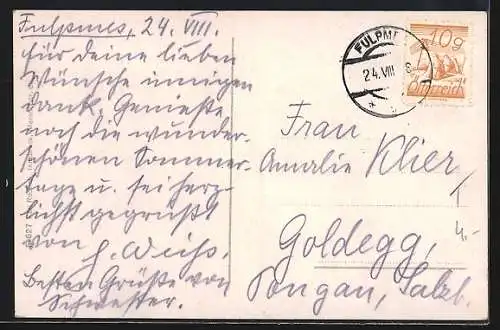 Fulpmes, 24. VIII.
für deine lieben
Wünsche innigen
Dank. Genieße
noch die wunder-
schönen Sommer-
tage u. sei herz-
lichst gegrüßt
von
Besten Grüße von
Schwester.
FULPMES
24.VIII
10g
Österreich
Frau
Amalie Klier
Goldegg,
Pongau, Salzb.
4.-